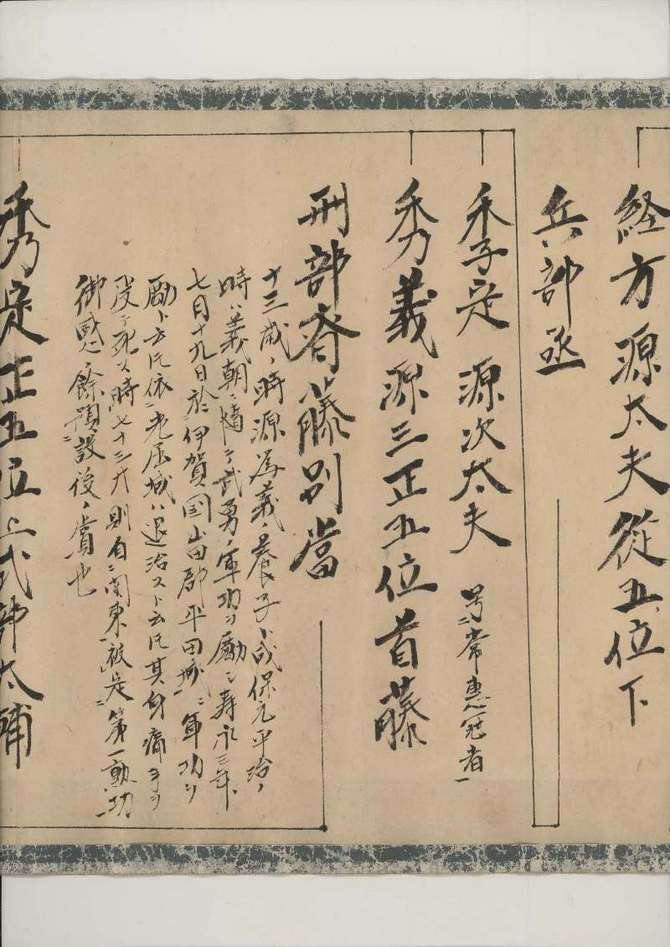 経方源太夫從五位下
兵部丞
季定 源次太夫 号常恵冠者
秀義 源三正五位首藤
刑部斎藤別當
十三歳ノ時源為義ノ養子ト成保元平治ノ
時ハ義朝ニ随テ武勇ノ軍功ヲ励ニ壽永三年
七月十九日於伊賀国山田郡平田城ニ軍功ヲ
励ト云𪜈依老屈城ハ退治スト云𪜈其身痛手ヲ
死ス時七十三才則自関東被是第一勲功
御感餘預設後ノ賞也
秀定正五位上式部太輔